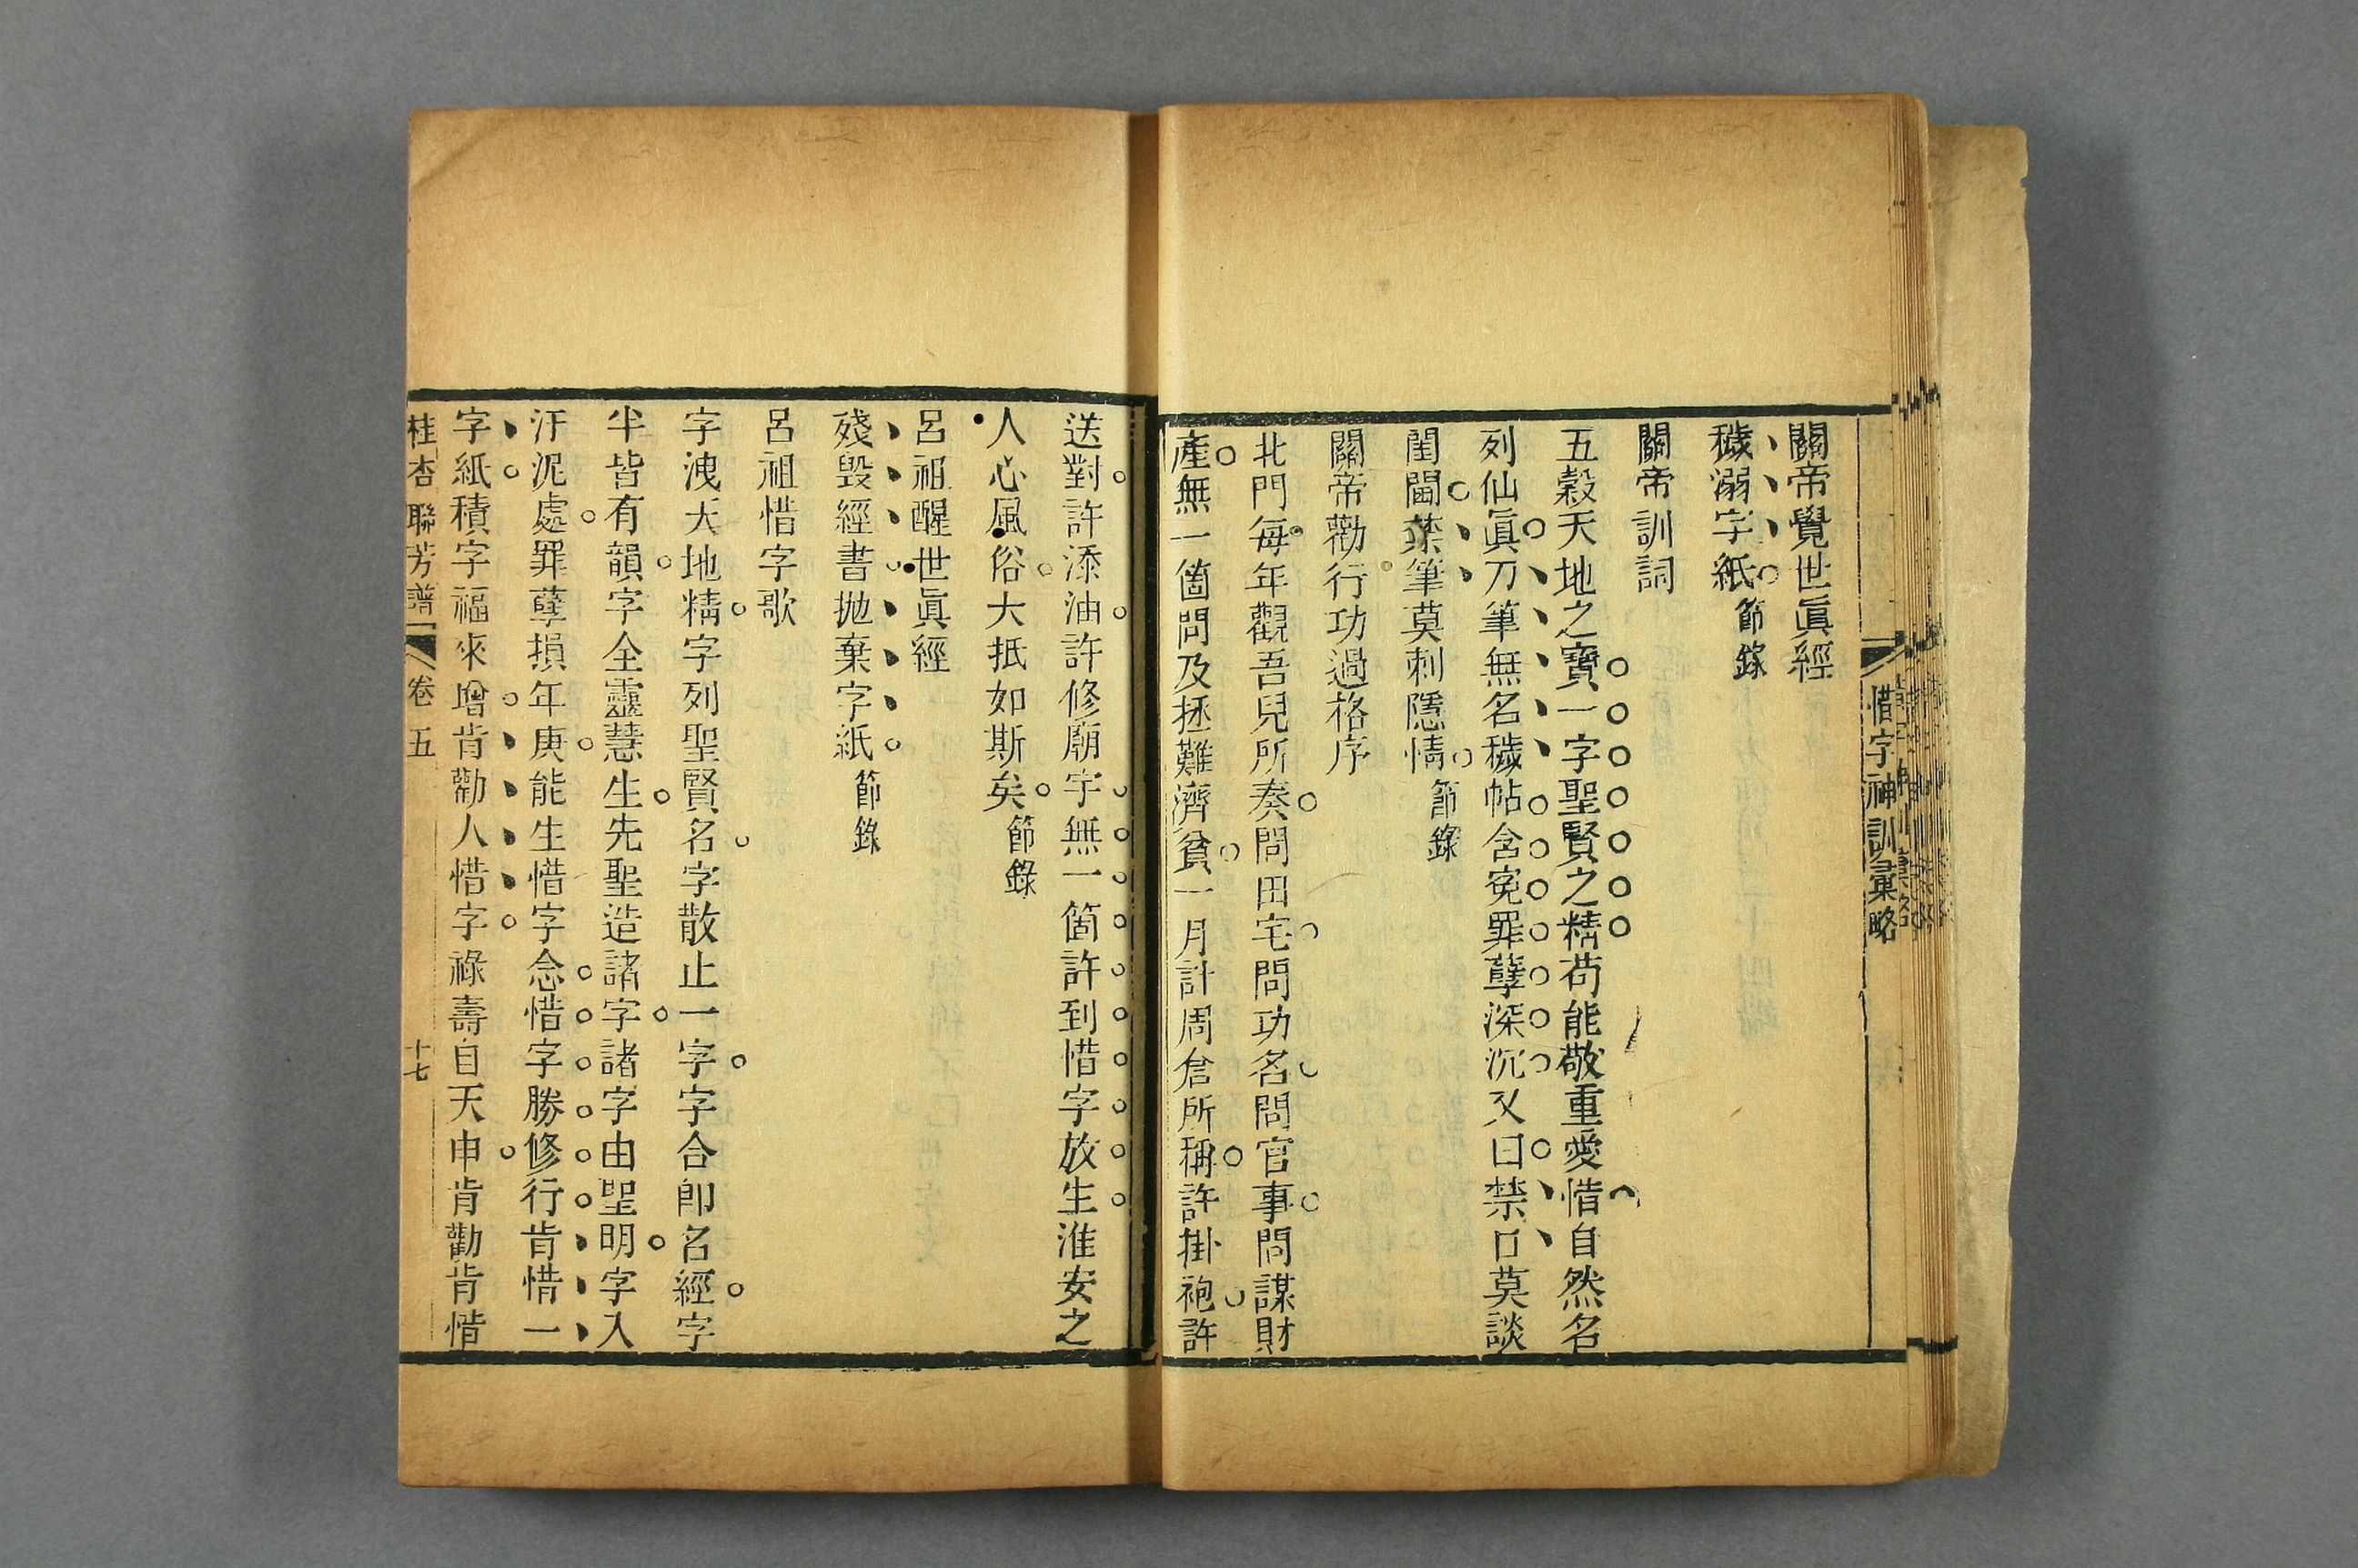 惜字神訓彙略
關帝覺世眞經
穢溺字紙節錄
關帝訓詞
五穀天地之寶一字聖賢之精苟能敬重愛惜自然名
列仙眞刀筆無名穢帖含寃罪孽深沉又曰禁口莫談
閨閫筆莫刺隱情節錄
關帝勸行功過格序
北門每年觀吾兒所奏問田宅問功名問官事問謀財
產無一箇問及拯難濟貧一月計周倉所稱許掛袍許
送對許添油許修廟宇無一箇許到惜字放生淮安之
人心風俗大抵如斯矣節錄
呂祖醒世眞經
殘毀經書抛棄字紙節錄
呂祖惜字歌
字洩天地精字列聖賢名字散止一字字合卽名經字
半皆有韻字全靈慧生先聖造諸字諸字由聖明字入
汙泥處罪孽損年庚能生惜字念惜字勝修行肯惜一
字紙積字福來增肯勸人惜字祿壽自天申肯勸肯惜
桂杏聯芳譜 卷五 十七